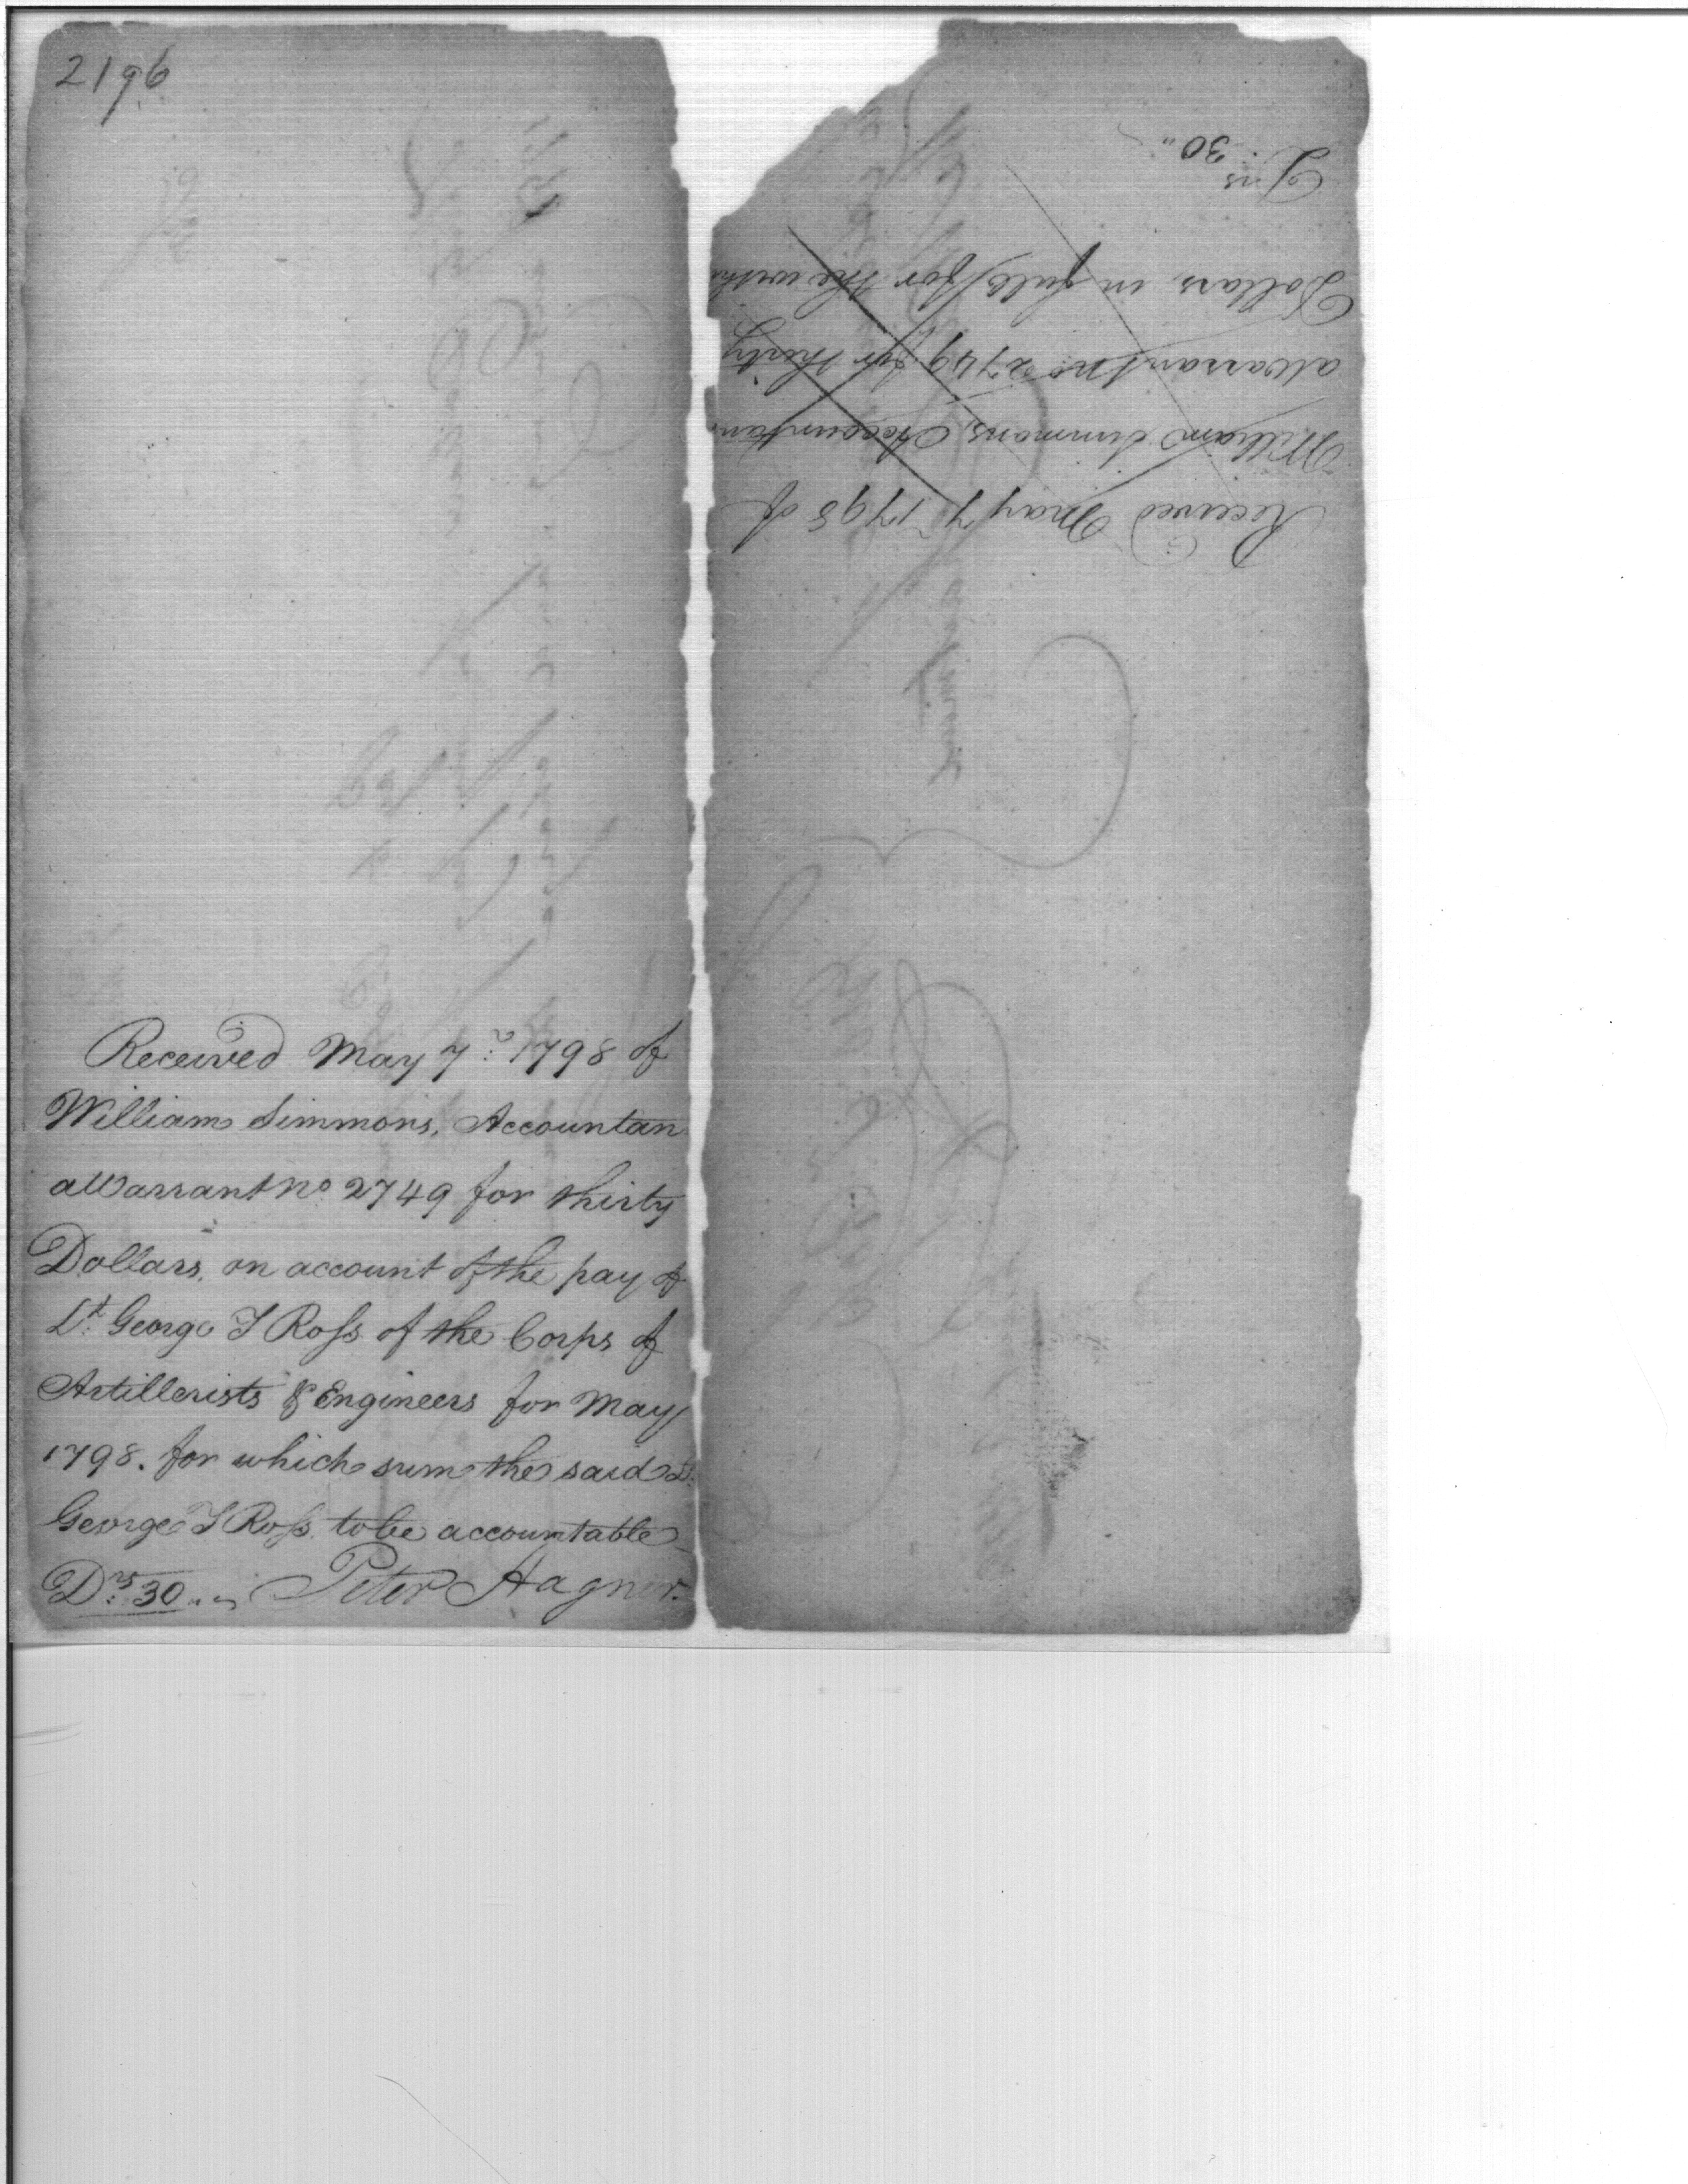 2196
Received May 7th 1798 of
William Simmons, Accountan
a Warrant No 2749 for thirty
Dollars, on account of the pay of
Lt George I Ross of the Corps of
Artillerists & Engineers for May
1798. for which sum the said Lt
George I Ross to be accountable
Drs 30 Peter Hagner.
Received May 7 1798 of
William Simmons, Accountan
a Warrant No 2749 for thirty
Dollars, in full for the with
Drs 30